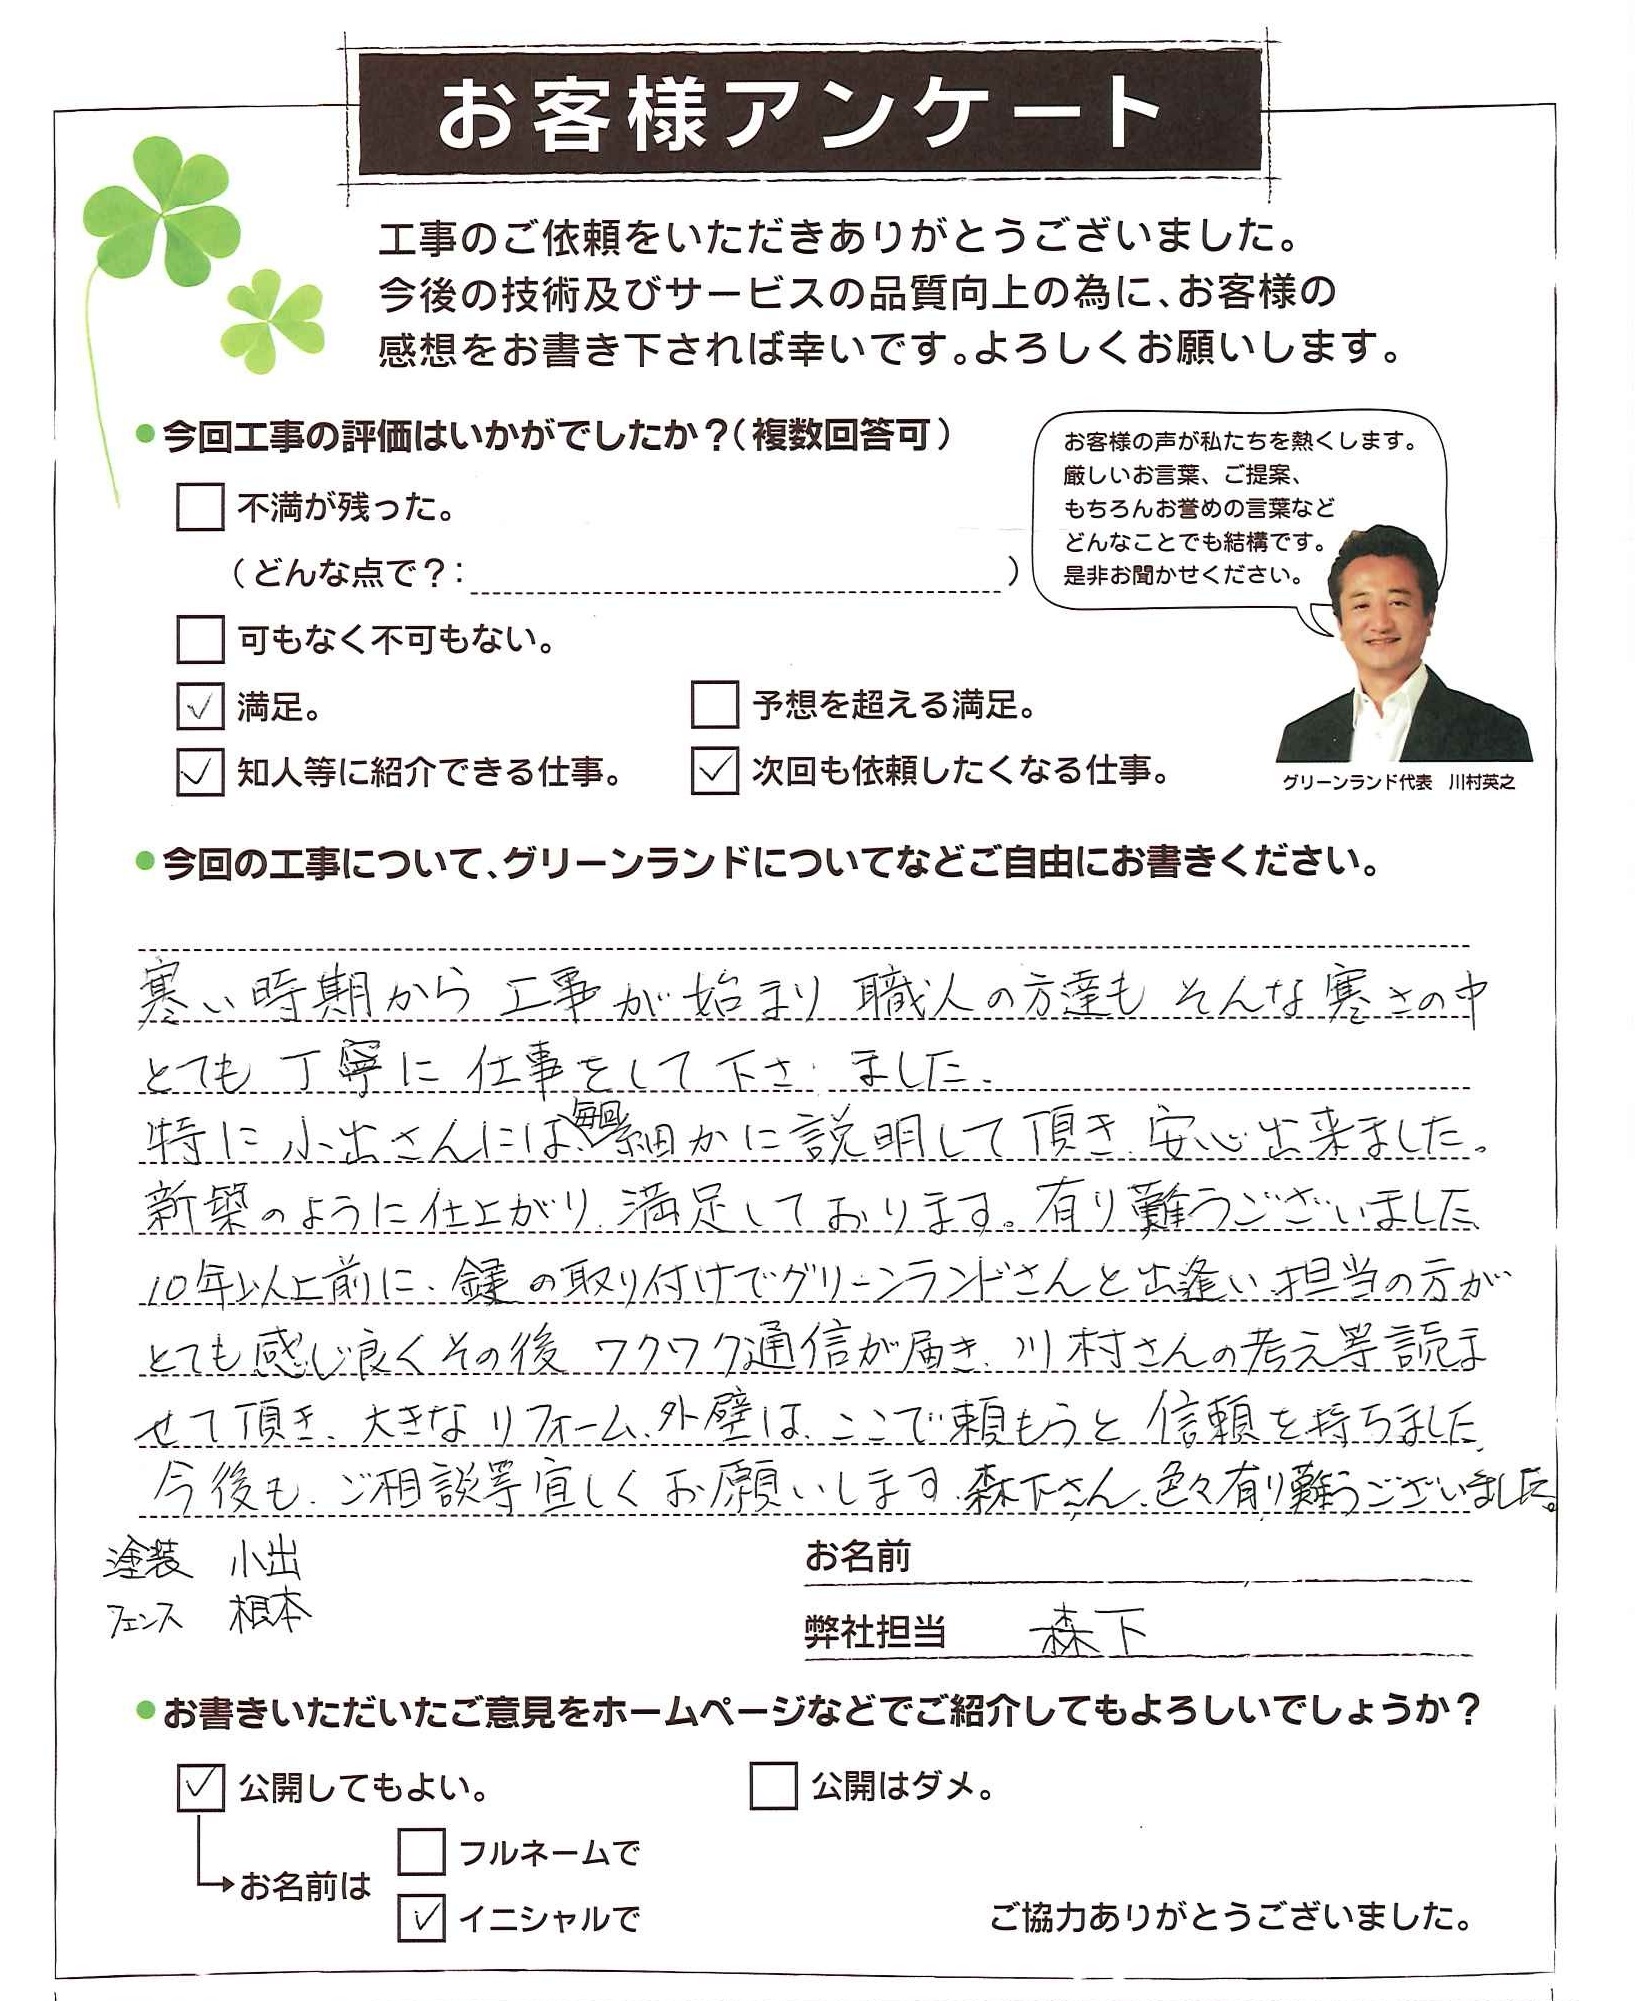 お客様アンケート
工事のご依頼をいただきありがとうございました。
今後の技術及びサービスの品質向上の為に、お客様の
感想をお書き下されば幸いです。よろしくお願いします。
●今回工事の評価はいかがでしたか？（複数回答可）
お客様の声が私たちを熱くします。
厳しいお言葉、ご提案、
もちろんお誉めの言葉など
どんなことでも結構です。
是非お聞かせください。
不満が残った。
（どんな点で？：　）
可もなく不可もない。
満足。
予想を超える満足。
知人等に紹介できる仕事。
次回も依頼したくなる仕事。
グリーンランド代表　川村英之
●今回の工事について、グリーンランドについてなどご自由にお書きください。
寒い時期から 工事が始まり 職人の方達も そんな寒さの中
とても丁寧に 仕事をして下さ ました、
特に小出さんには、毎回細かに説明して頂き、安心出来ました。
新築のように仕上がり、満足しております。有り難うございました、
10年以上前に、鍵の取り付けでグリーンランドさんと出逢い、担当の方が
とても感じ良くその後 ワクワク通信が届き、川村さんの考え等読ま
せて頂き、大きなリフォーム、外壁は、ここで頼もうと 信頼を持ちました、
今後も、ご相談等宜しくお願いします、森下さん、色々有り難うございました。
塗装　小出
フェンス　根本
お名前
弊社担当　森下
●お書きいただいたご意見をホームページなどでご紹介してもよろしいでしょうか？
公開してもよい。
公開はダメ。
お名前は
フルネームで
イニシャルで
ご協力ありがとうございました。